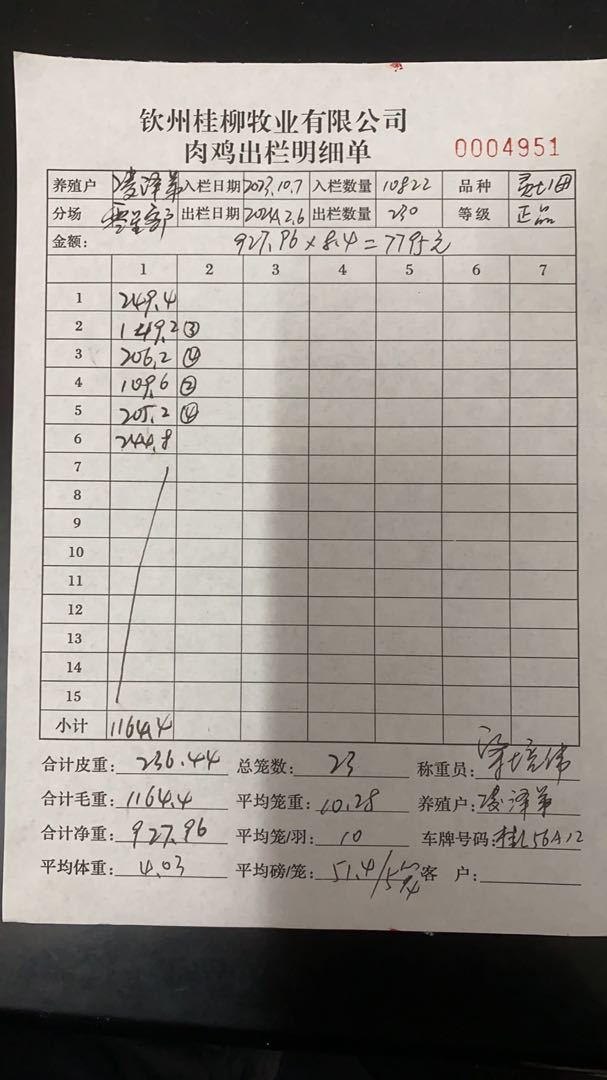 钦州桂柳牧业有限公司
肉鸡出栏明细单 0004951
养殖户 凌泽弟 入栏日期 2023.10.7 入栏数量 10822 品种
分场 入栏日期 2024.2.6 出栏数量 230 等级 正品
金额： 927.96×8.4=7795元
1 2 3 4 5 6 7
1 249.4
2 149.2 ③
3 206.2 ④
4 109.6 ②
5 205.2 ④
6 244.8
7
8
9
10
11
12
13
14
15
小计 1164.4
合计皮重: 236.44 总笼数: 23 称重员:
合计毛重: 1164.4 平均笼重: 10.28 养殖户: 凌泽弟
合计净重: 927.96 平均笼/羽: 10 车牌号码: 桂L56A12
平均体重: 4.03 平均磅/笼: 51.4/ 客 户: